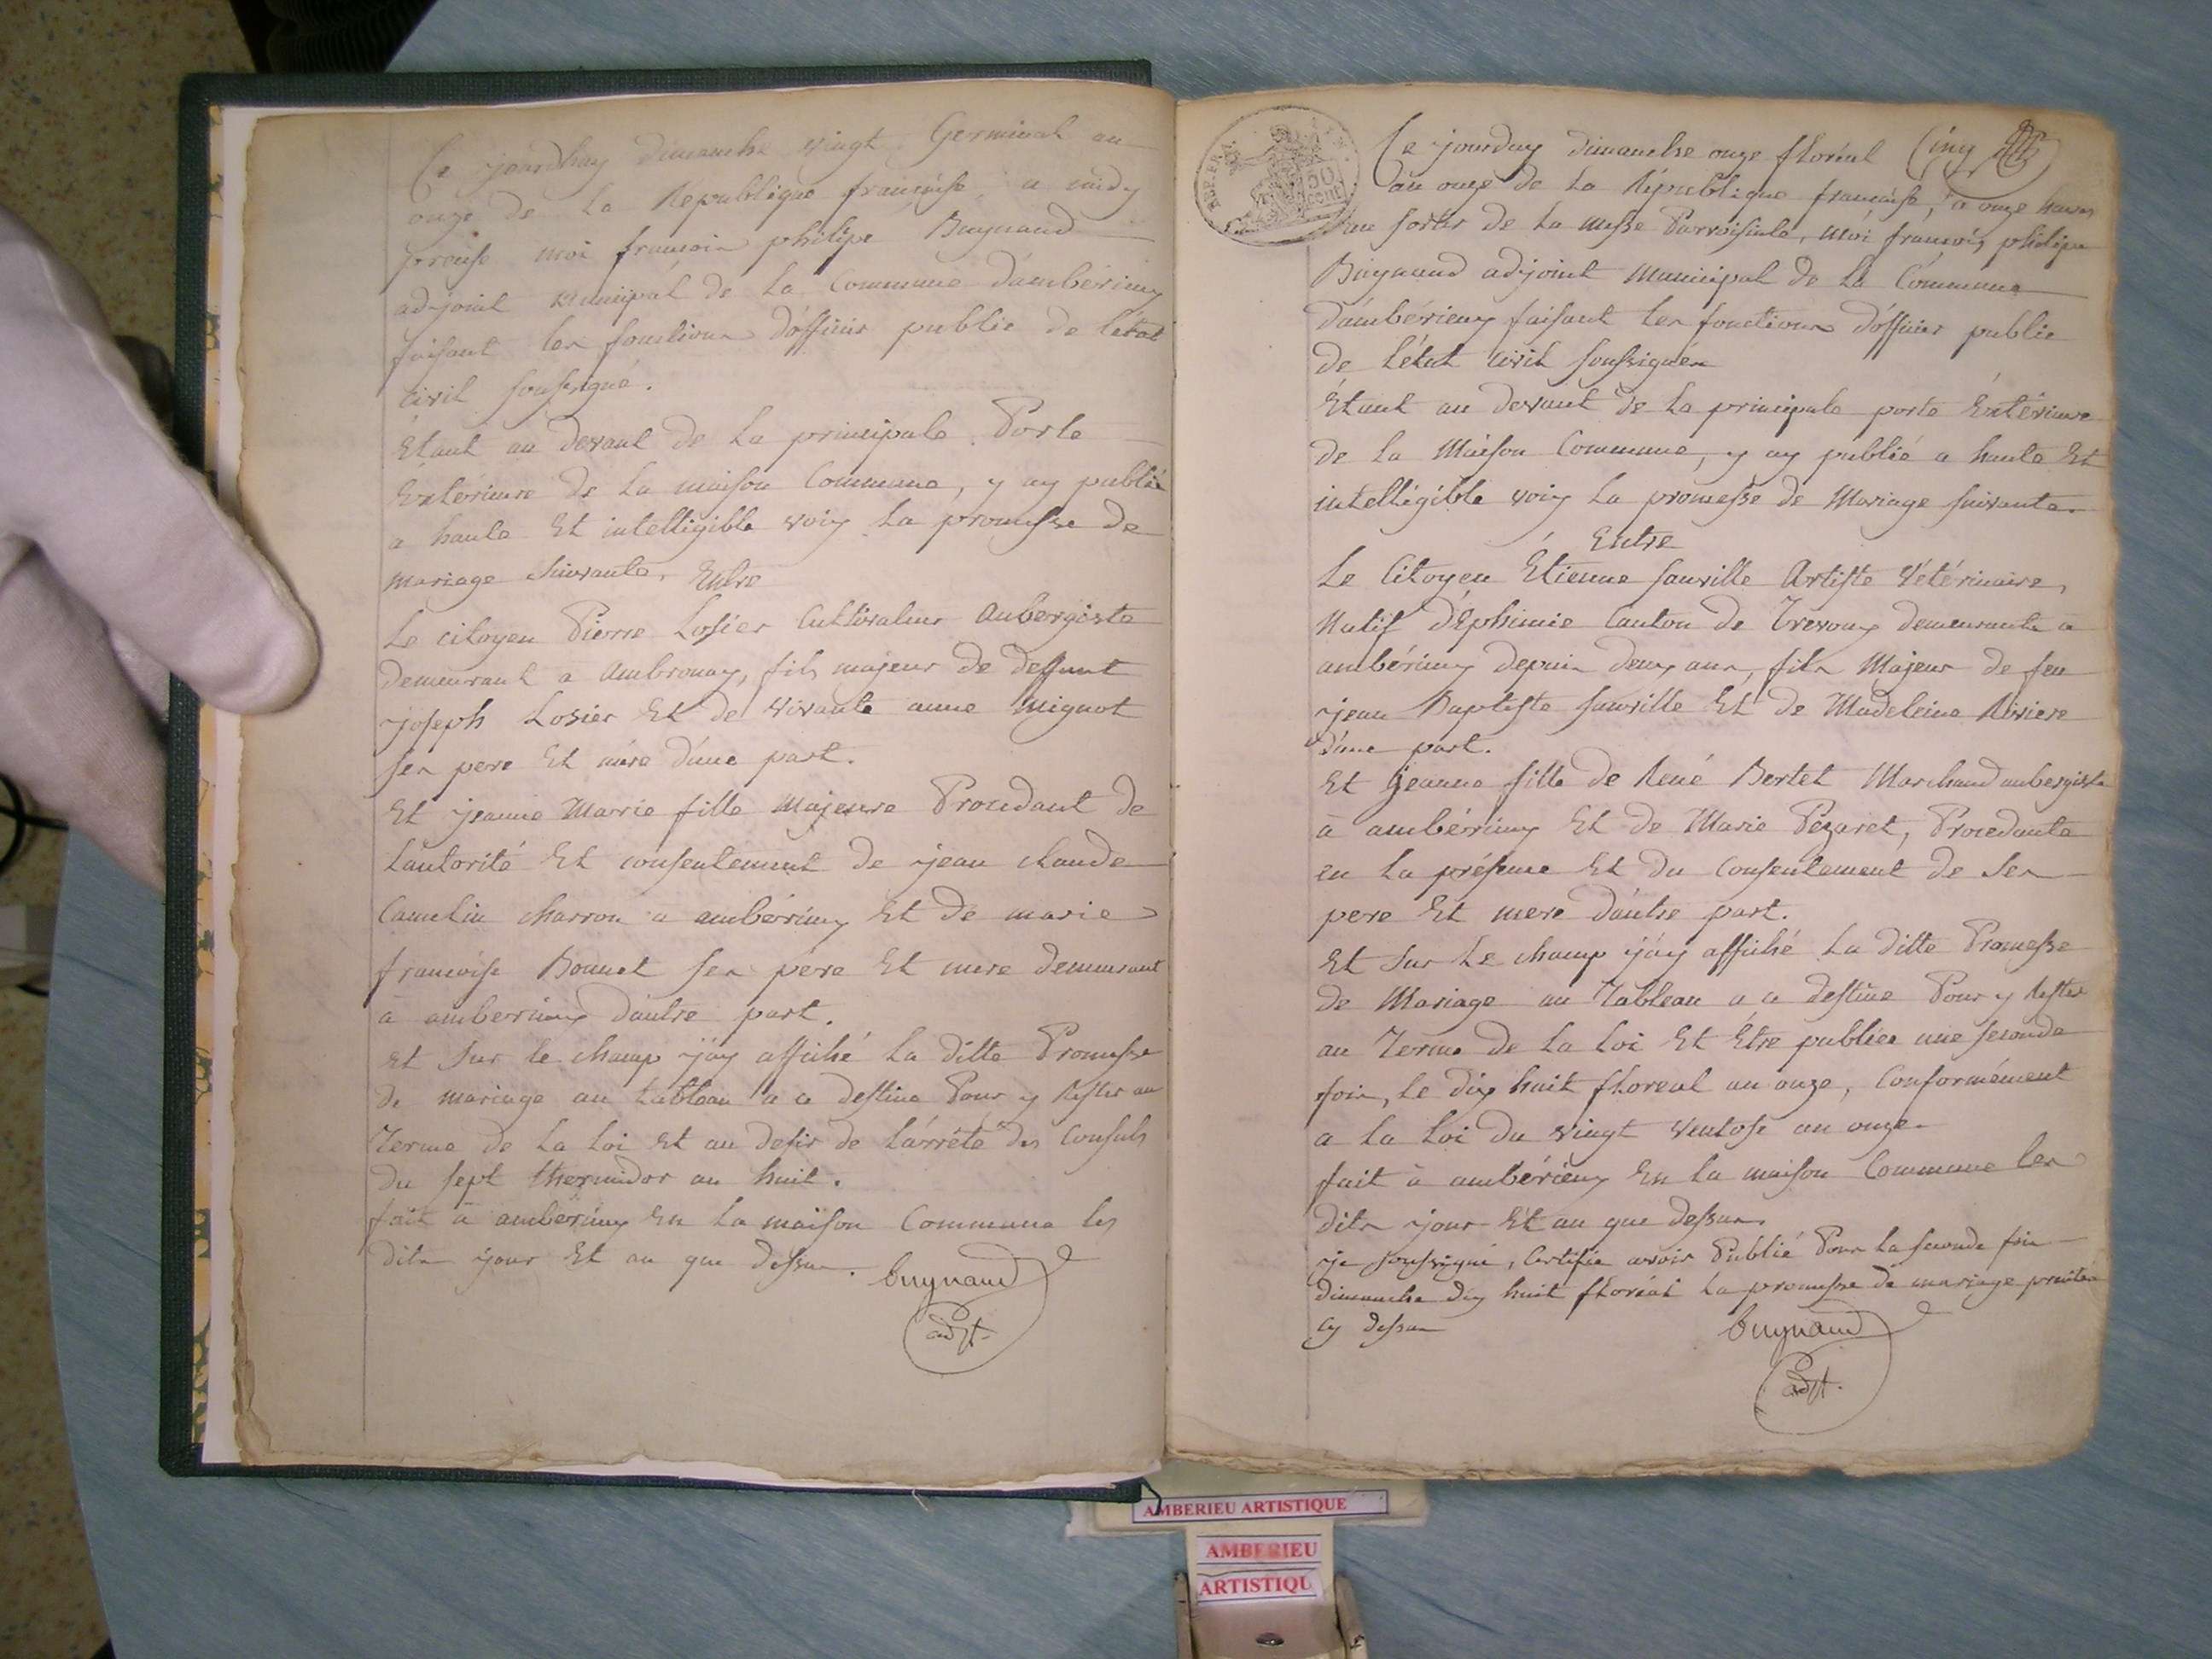 Ce jourdhuy dimanche vingt Germinal an
onze de la Republique françoise, a midy
preuse moi francois philipe Buynand
adjoint municipal de la Commune d'ambérieux
faisant les fonctions d'officier public de l'état
civil soussigné.
Étant au devant de la principale Porte
Extérieure de la maison Commune, y ay publié
a haute Et intelligible voix la promesse de
mariage suivante. Entre
Le citoyen Pierre Losier Cultivateur Aubergiste
demeurant a Ambronay, fils majeur de deffunt
joseph Losier Et de vivante anne Mignot
ses pere Et mére d'une part.
Et jeanne Marie fille Majeure Procedant de
L'autorité Et consentement de jean claude
Camelin charron a ambérieux Et de marie
francoise Bonnet ses pére Et mere demeurant
à amberrieux d'autre part.
Et sur le champ j'ay affiché la ditte Promesse
de mariage au tableau a ce destine Pour y Rester au
Terme de la Loi Et au desir de l'arrêté des Consuls
du sept thermidor an huit.
fait à amberieux En la maison Commune les
dits jour Et an que dessus. buynand
adjt.
Ce jourduy dimanche onze floréal Cinq
an onze de la République francaise, a onze heures
au sortir de la messe Parroissiale, moi francois philipe
Buynand adjoint Municipal de la Commune
d'ambérieux faisant les fonctions d'officier public
de l'état civil soussignés
Étant au devant de la principale porte Extérieure
de la Maison Commune, y ay publié a haute Et
intelligible voix la promesse de Mariage suivante.
Entre
Le Citoyen Étienne Sauville Artiste Vétérinaire,
Natif d'Ephimie Canton de Trevoux demeurante a
ambérieux depuis deux ans, fils Majeur de feu
jean Baptiste Sauville Et de Madeleine Riviere
d'une part.
Et Jeanne fille de René Bertet Marchand aubergiste
à ambérieux Et de Marie Pezaret, Procedante
en la présence Et du Consentement de ses
pere Et mere d'autre part.
Et Sur Le champ j'ay affiché La ditte Promesse
de Mariage au Tableau a ce destine Pour y Rester
au Terme de la Loi Et Être publiée une seconde
fois, le dix huit floreal an onze, Conformément
a la Loi du vingt ventose an onze.
fait à ambérieux En la maison Commune les
dits jour Et an que dessus.
je soussigné, Certifie avoir Publié Pour la seconde fois
dimanche dix huit floréal la promesse de mariage
cy dessus buynand
adjt.
50
cent
AMBERIEU ARTISTIQUE
AMBERIEU
ARTISTIQU